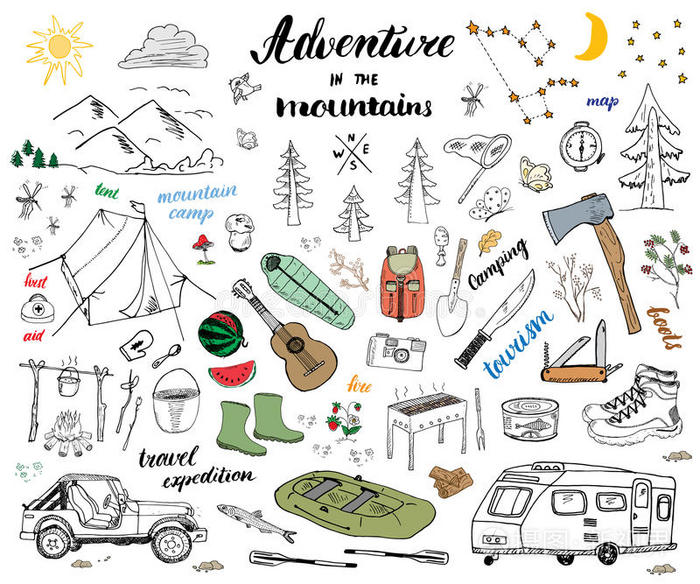 Adventure
IN THE
mountains
map
N
W E
S
tent
mountain
camp
first
aid
Camping
tourism
boots
fire
travel
expedition